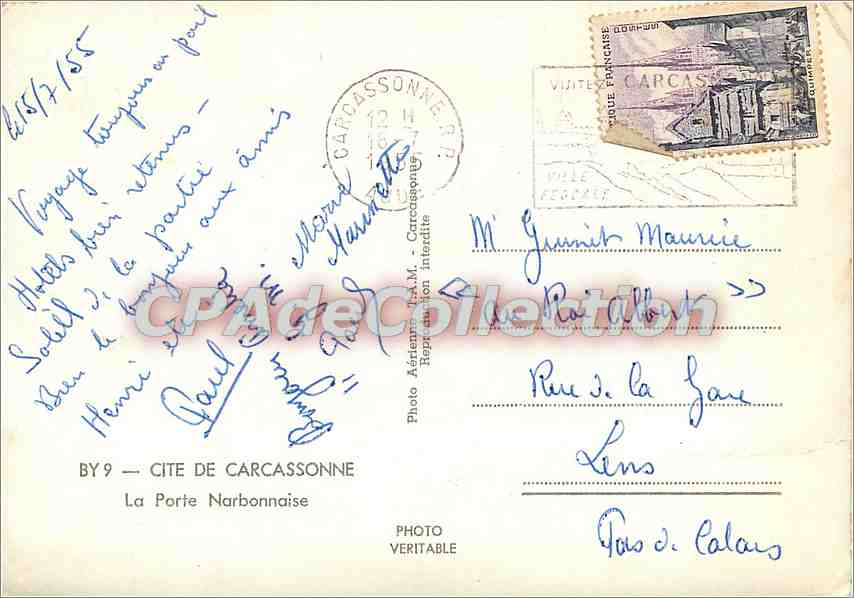 le 15/7/55
Voyage toujours au poil
Hotels bien retenus -
Soleil de la partie
Bien le bonjour aux amis
Henri et
Paul
Bonjour
Marie
Paul
CARCASSONNE R.P.
12 H
VISITEZ CARCAS
VILLE
FEODALE
IQUE FRANÇAISE
POSTES
QUIMPER
Photo Aérienne T.A.M. - Carcassonne
Reproduction interdite
CPAdeCollection
Mr Maurice
« au Roi Albert »
Rue de la Gare
Lens
Pas de Calais
BY 9 — CITE DE CARCASSONNE
La Porte Narbonnaise
PHOTO
VERITABLE